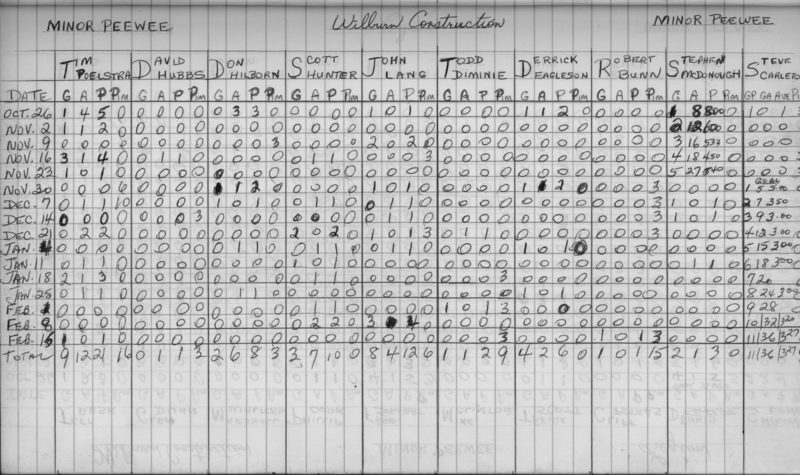 MINOR PEEWEE Wilburn Construction MINOR PEEWEE
TIM POELSTRA DAVID HUBBS DON HILBORN SCOTT HUNTER JOHN LANG TODD DIMINIE DERRICK EAGLESON ROBERT BUNN STEPHEN McDONOUGH STEVE
DATE G A P Pim G A P Pim G A P Pim G A P Pim G A P Pim G A P Pim G A P Pim G A P Pim G A P Pim GP GA AVE
OCT. 26 1 4 5 0 0 0 0 0 0 3 3 0 0 0 0 0 1 0 1 0 0 0 0 0 1 1 2 0 0 0 0 0
NOV. 2 1 1 2 0 0 0 0 0 0 0 0 0 0 0 0 0 0 0 0 0 0 0 0 0 0 0 0 0 0 0 0 0
NOV. 9 0 0 0 0 0 0 0 0 0 0 0 3 0 0 0 0 2 0 2 0 0 0 0 0 0 0 0 0 0 0 0 0 3 16 533
NOV. 16 3 1 4 0 0 1 1 0 0 0 0 0 0 1 1 0 0 0 0 3 0 0 0 0 0 0 0 0 0 0 0 0 4 18 450
NOV. 23 1 0 1 0 0 0 0 0 0 0 0 0 0 0 0 0 0 0 0 0 0 0 0 0 0 0 0 0 0 0 0 0 5 27 540
NOV. 30 0 0 0 6 0 0 0 0 1 1 2 0 0 0 0 0 1 0 1 0 0 0 0 0 1 1 2 0 0 0 0 3 0 0 0 0 1 5 5.00
DEC. 7 0 1 1 10 0 0 0 0 1 0 1 0 0 1 1 0 0 1 1 0 0 0 0 0 0 0 0 0 0 0 0 3 1 0 1 0 2 7 350
DEC. 14 0 0 0 0 0 0 0 3 0 0 0 0 0 0 0 0 0 1 1 0 0 0 0 0 0 0 0 0 0 0 0 3 1 0 1 0 3 9 3.00
DEC. 21 0 2 2 0 0 0 0 0 0 0 0 0 2 0 2 0 1 0 1 3 0 1 1 0 0 0 0 0 0 0 0 0 0 0 0 0 4 12 3.00
JAN. 4 0 0 0 0 0 0 0 0 0 1 1 0 0 1 1 0 0 1 1 0 0 0 0 0 1 0 1 0 0 0 0 0 0 0 0 0 5 15 300
JAN. 11 0 1 1 0 0 0 0 0 0 0 0 0 1 0 1 0 0 0 0 0 0 0 0 0 0 0 0 0 0 0 0 0 0 1 1 0 6 18 300
JAN. 18 2 1 3 0 0 0 0 0 0 0 0 0 0 1 1 0 0 0 0 0 0 0 0 3 0 0 0 0 0 0 0 0 0 0 0 0
JAN. 25 0 1 1 0 0 0 0 0 0 1 1 0 0 0 0 0 0 0 0 0 0 0 0 0 1 0 1 0 0 0 0 0 0 0 0 0 8 24
FEB. 1 0 0 0 0 0 0 0 0 0 0 0 0 0 1 1 0 0 0 0 0 1 0 1 3 0 0 0 0 0 0 0 0 0 0 0 0 9 28
FEB. 8 0 0 0 0 0 0 0 0 0 0 0 0 0 2 2 0 3 4 0 0 0 0 0 0 0 0 0 0 0 0 0 0 0 0 0 0 10/32/320
FEB. 15 1 0 1 0 0 0 0 0 0 0 0 0 0 0 0 0 0 0 0 0 0 0 0 3 0 0 0 0 1 0 1 3 0 0 0 0 11/36/327
TOTAL 9 12 21 16 0 1 1 3 2 6 8 3 3 7 10 0 8 4 12 6 1 1 2 9 4 2 6 0 1 0 1 15 2 1 3 0 11/36/327